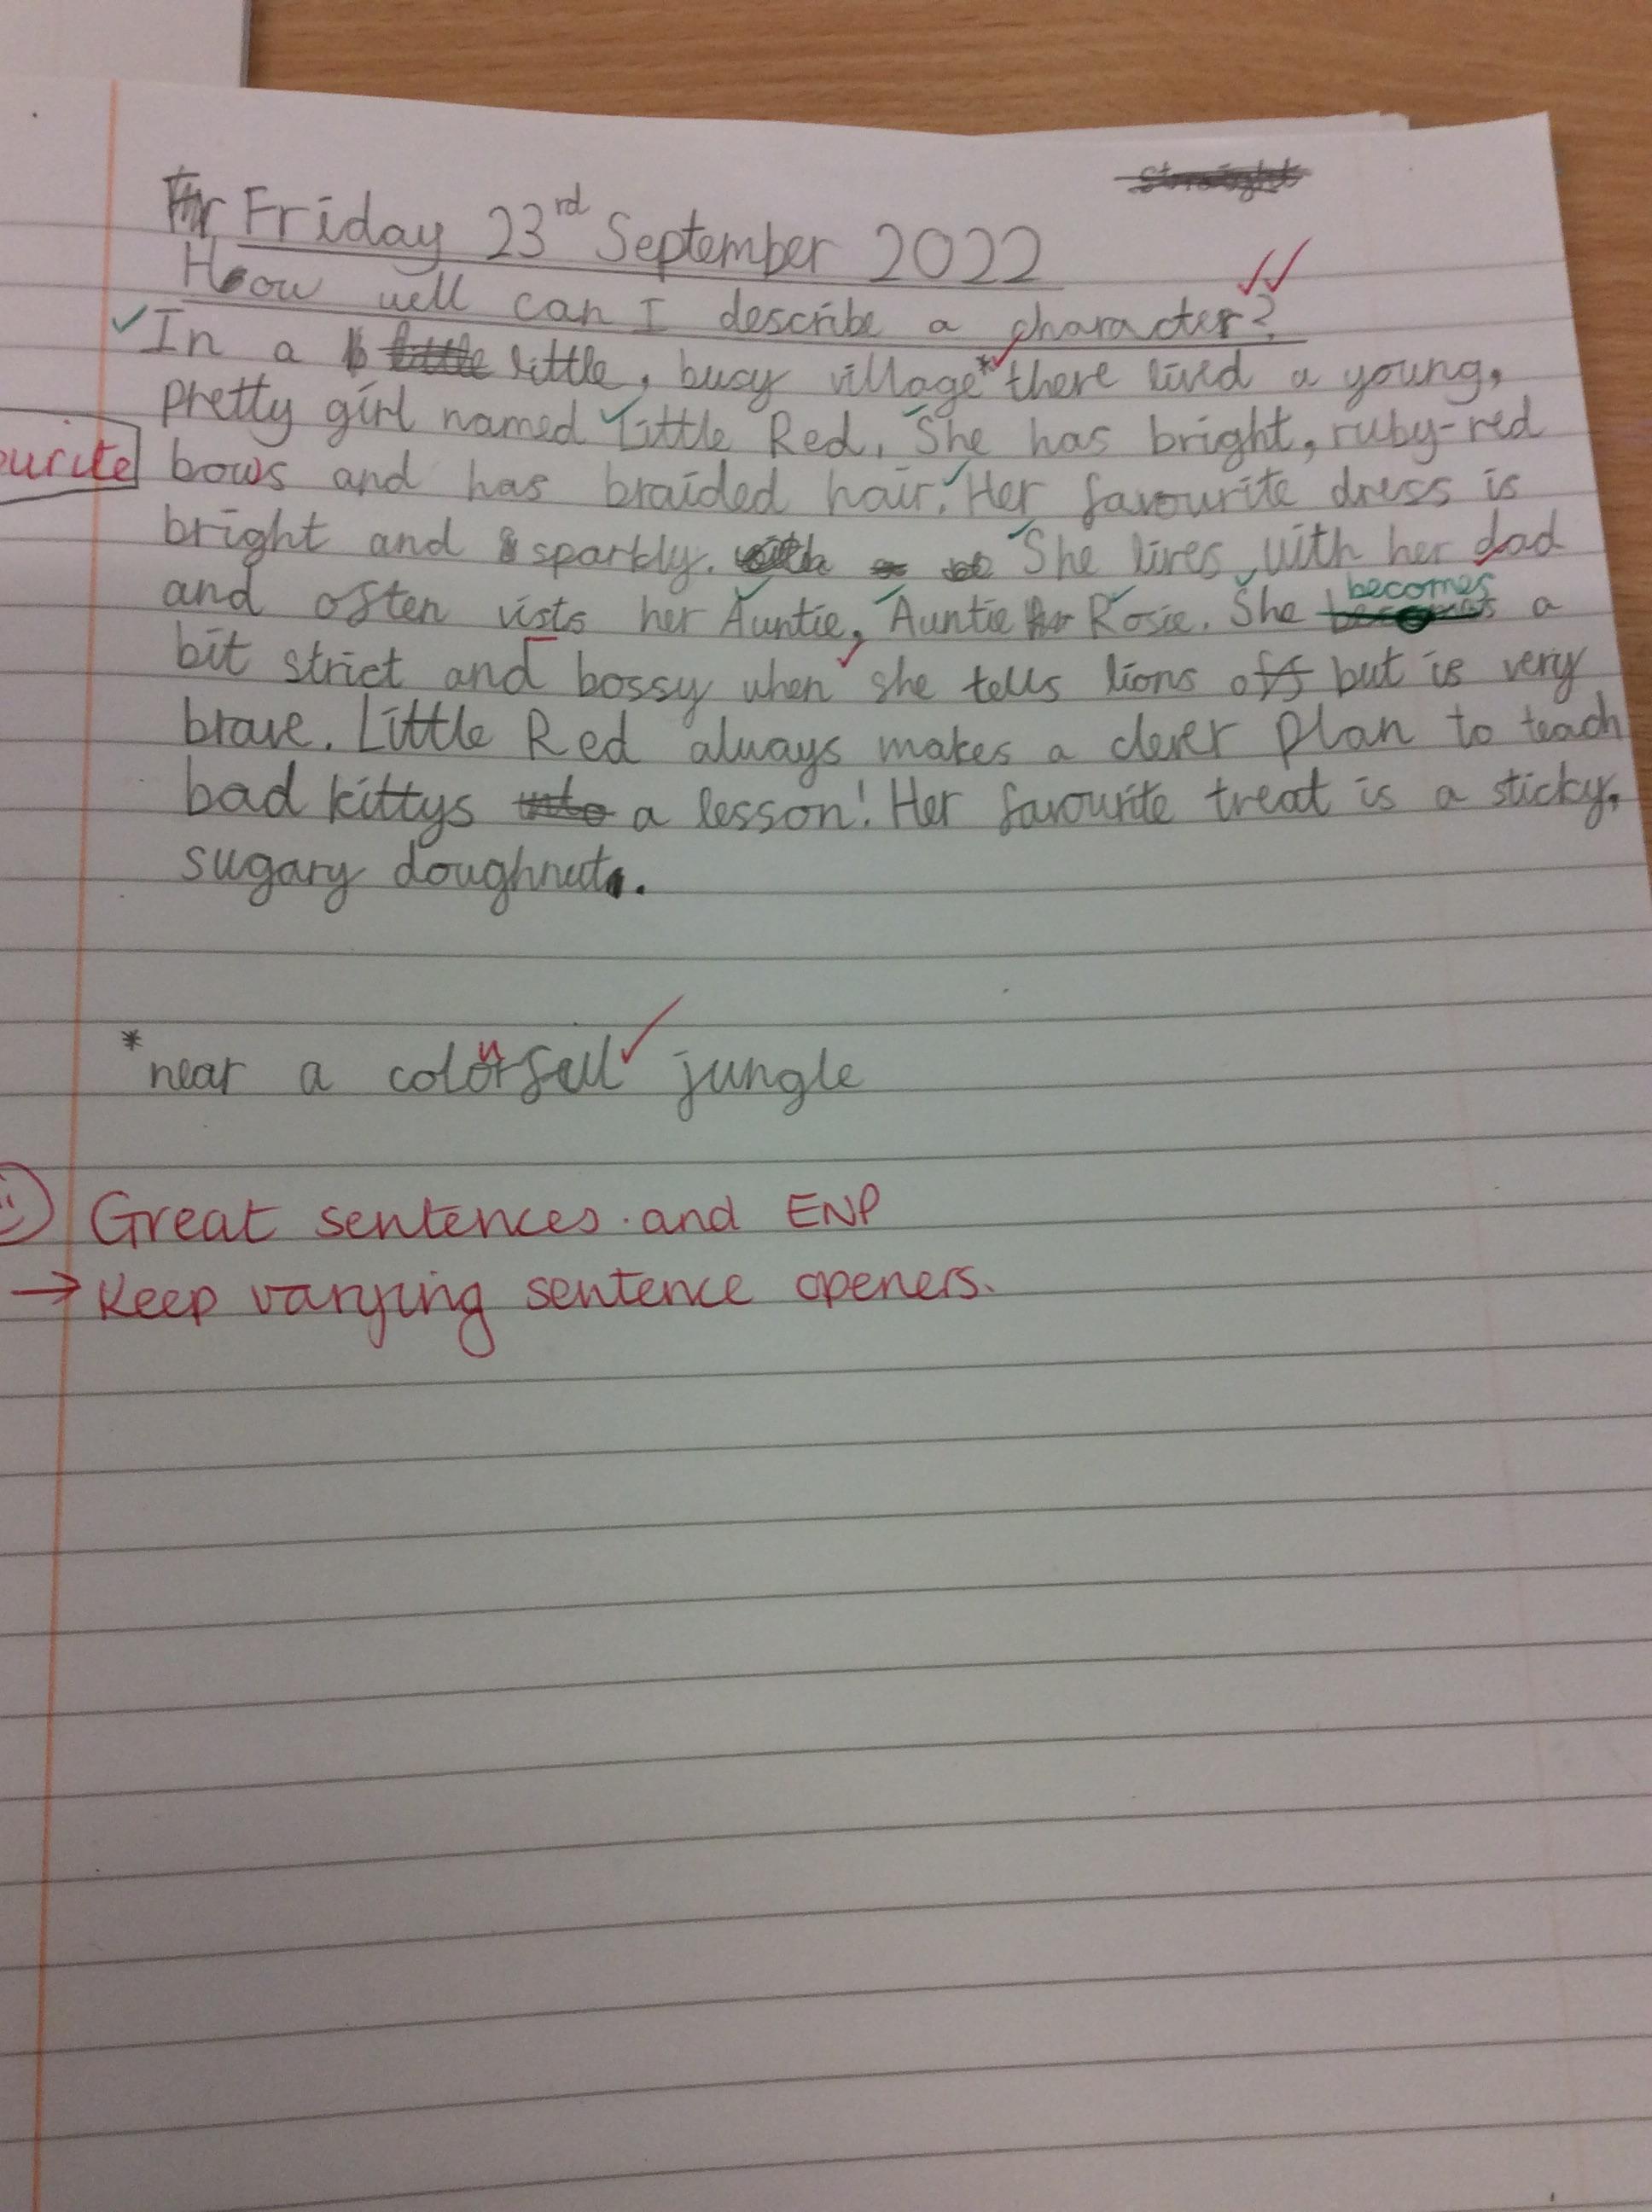 Friday 23rd September 2022
How well can I describe a character?
In a little, busy village* there lived a young,
pretty girl named Little Red. She has bright, ruby-red
urite bows and has braided hair. Her favourite dress is
bright and sparkly. She lives with her dad
and often vists her Auntie, Auntie Rosie. She becomes a
bit strict and bossy when she tells lions off but is very
brave. Little Red always makes a clever plan to teach
bad kittys a lesson! Her favourite treat is a sticky,
sugary doughnut.
*near a colourfull jungle
Great sentences and ENP
→ Keep varying sentence openers.